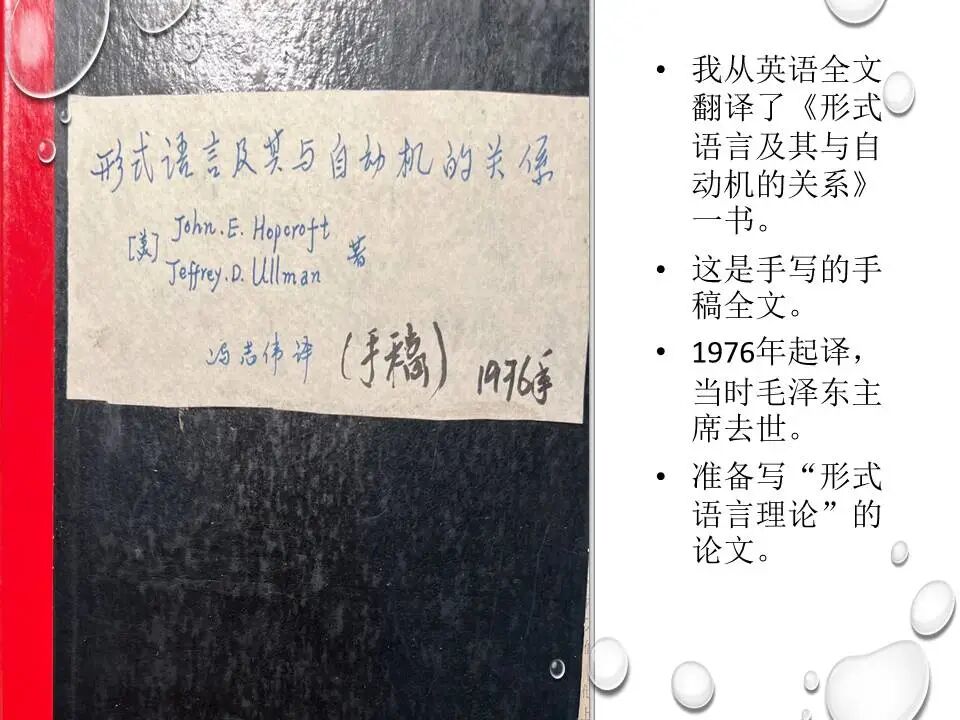 形式语言及其与自动机的关係
[美] John.E.Hopcroft
Jeffrey.D.Ullman 著
冯志伟译 (手稿) 1976年
• 我从英语全文
翻译了《形式
语言及其与自
动机的关系》
一书。
• 这是手写的手
稿全文。
• 1976年起译，
当时毛泽东主
席去世。
• 准备写“形式
语言理论”的
论文。